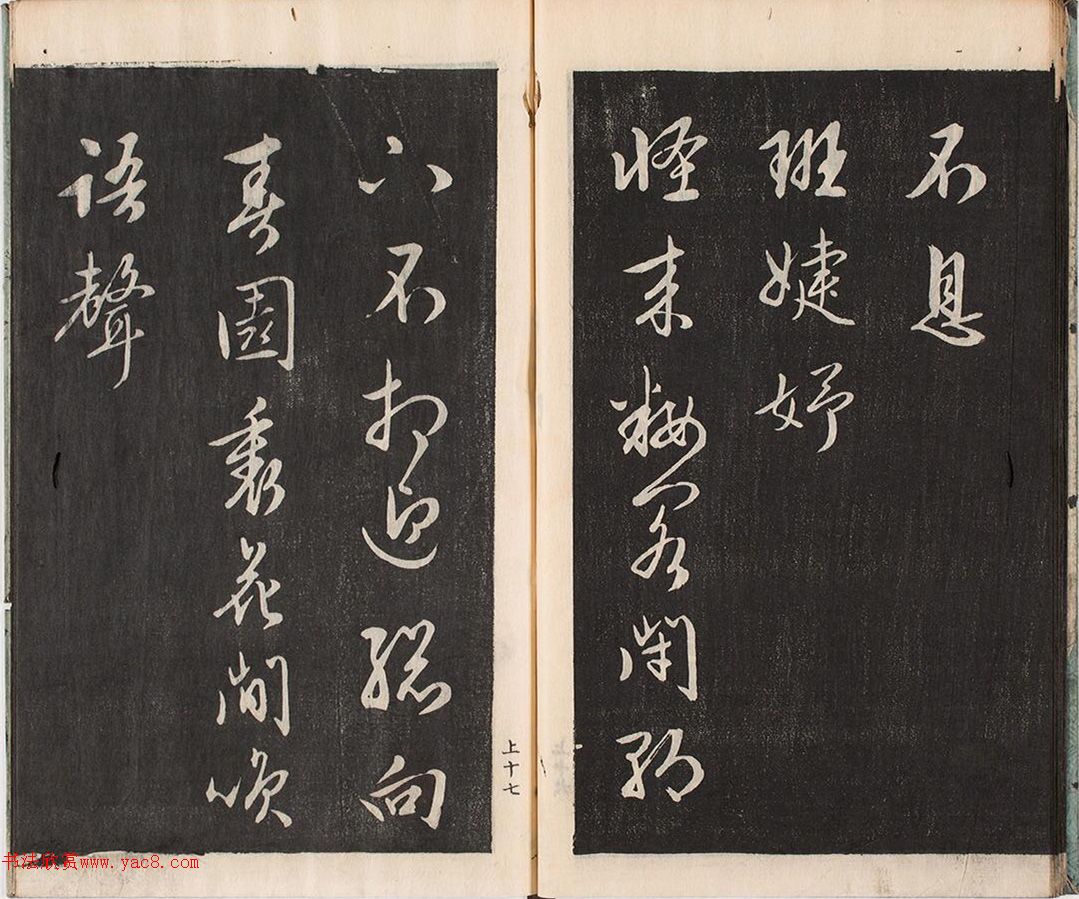 不息
班婕妤
怪来粧閣閉朝
下不相迎總向
春園裏花間咲
語聲
上十七
书法欣赏www.yac8.com